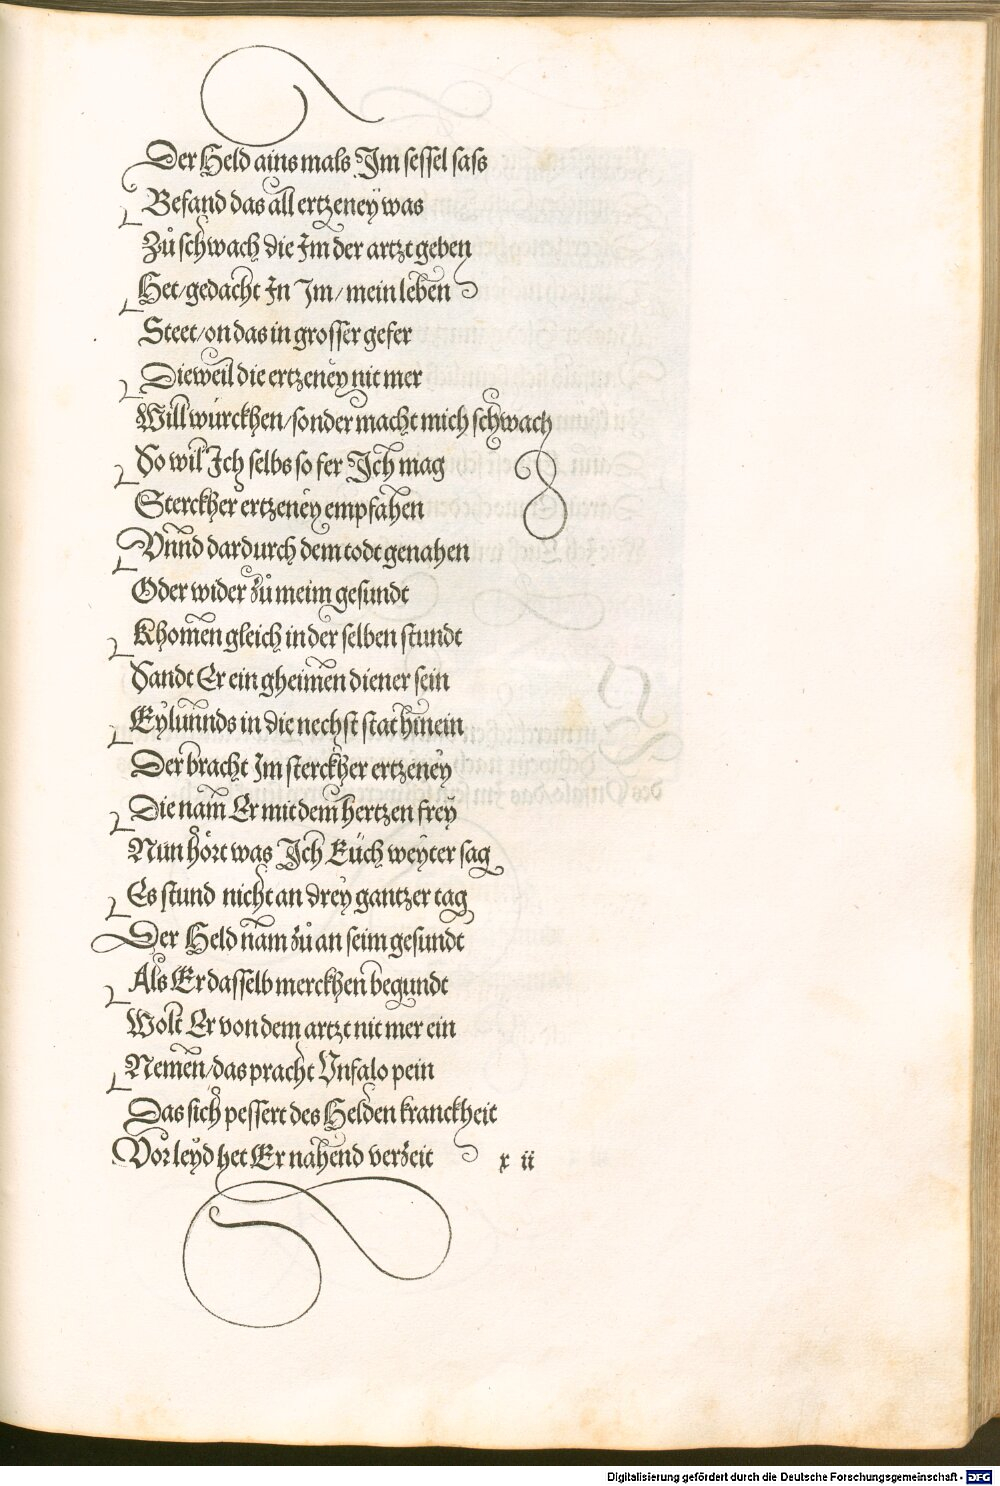 Der Held ains mals Im sessel sass
Befand das all ertzeney was
Zů schwach die Im der artzt geben
Het/gedacht In Im/mein leben
Steet/on das in grosser gefer
Dieweil die ertzeney nit mer
Will würckhen/sonder macht mich schwach
So wil Ich selbs so fer Ich mag
Sterckher ertzeney empfahen
Vnnd dardurch dem todt genahen
Oder wider zů meim gesundt
Khomen gleich in der selben stundt
Sandt Er ein gheimen diener sein
Eylunnds in die nechst stat hinein
Der bracht Im sterckher ertzeney
Die nam Er mit dem hertzen frey
Nun hört was Ich Euch weyter sag
Es stund nicht an drey gantzer tag
Der Held nam zů an seim gesundt
Als Er dasselb merckhen begundt
Wolt Er von dem artzt nit mer ein
Nemen/das pracht Vnfalo pein
Das sich pessert des Helden kranckheit
Vor leyd het Er nahend verzeit x ii
Digitalisierung gefördert durch die Deutsche Forschungsgemeinschaft - DFG